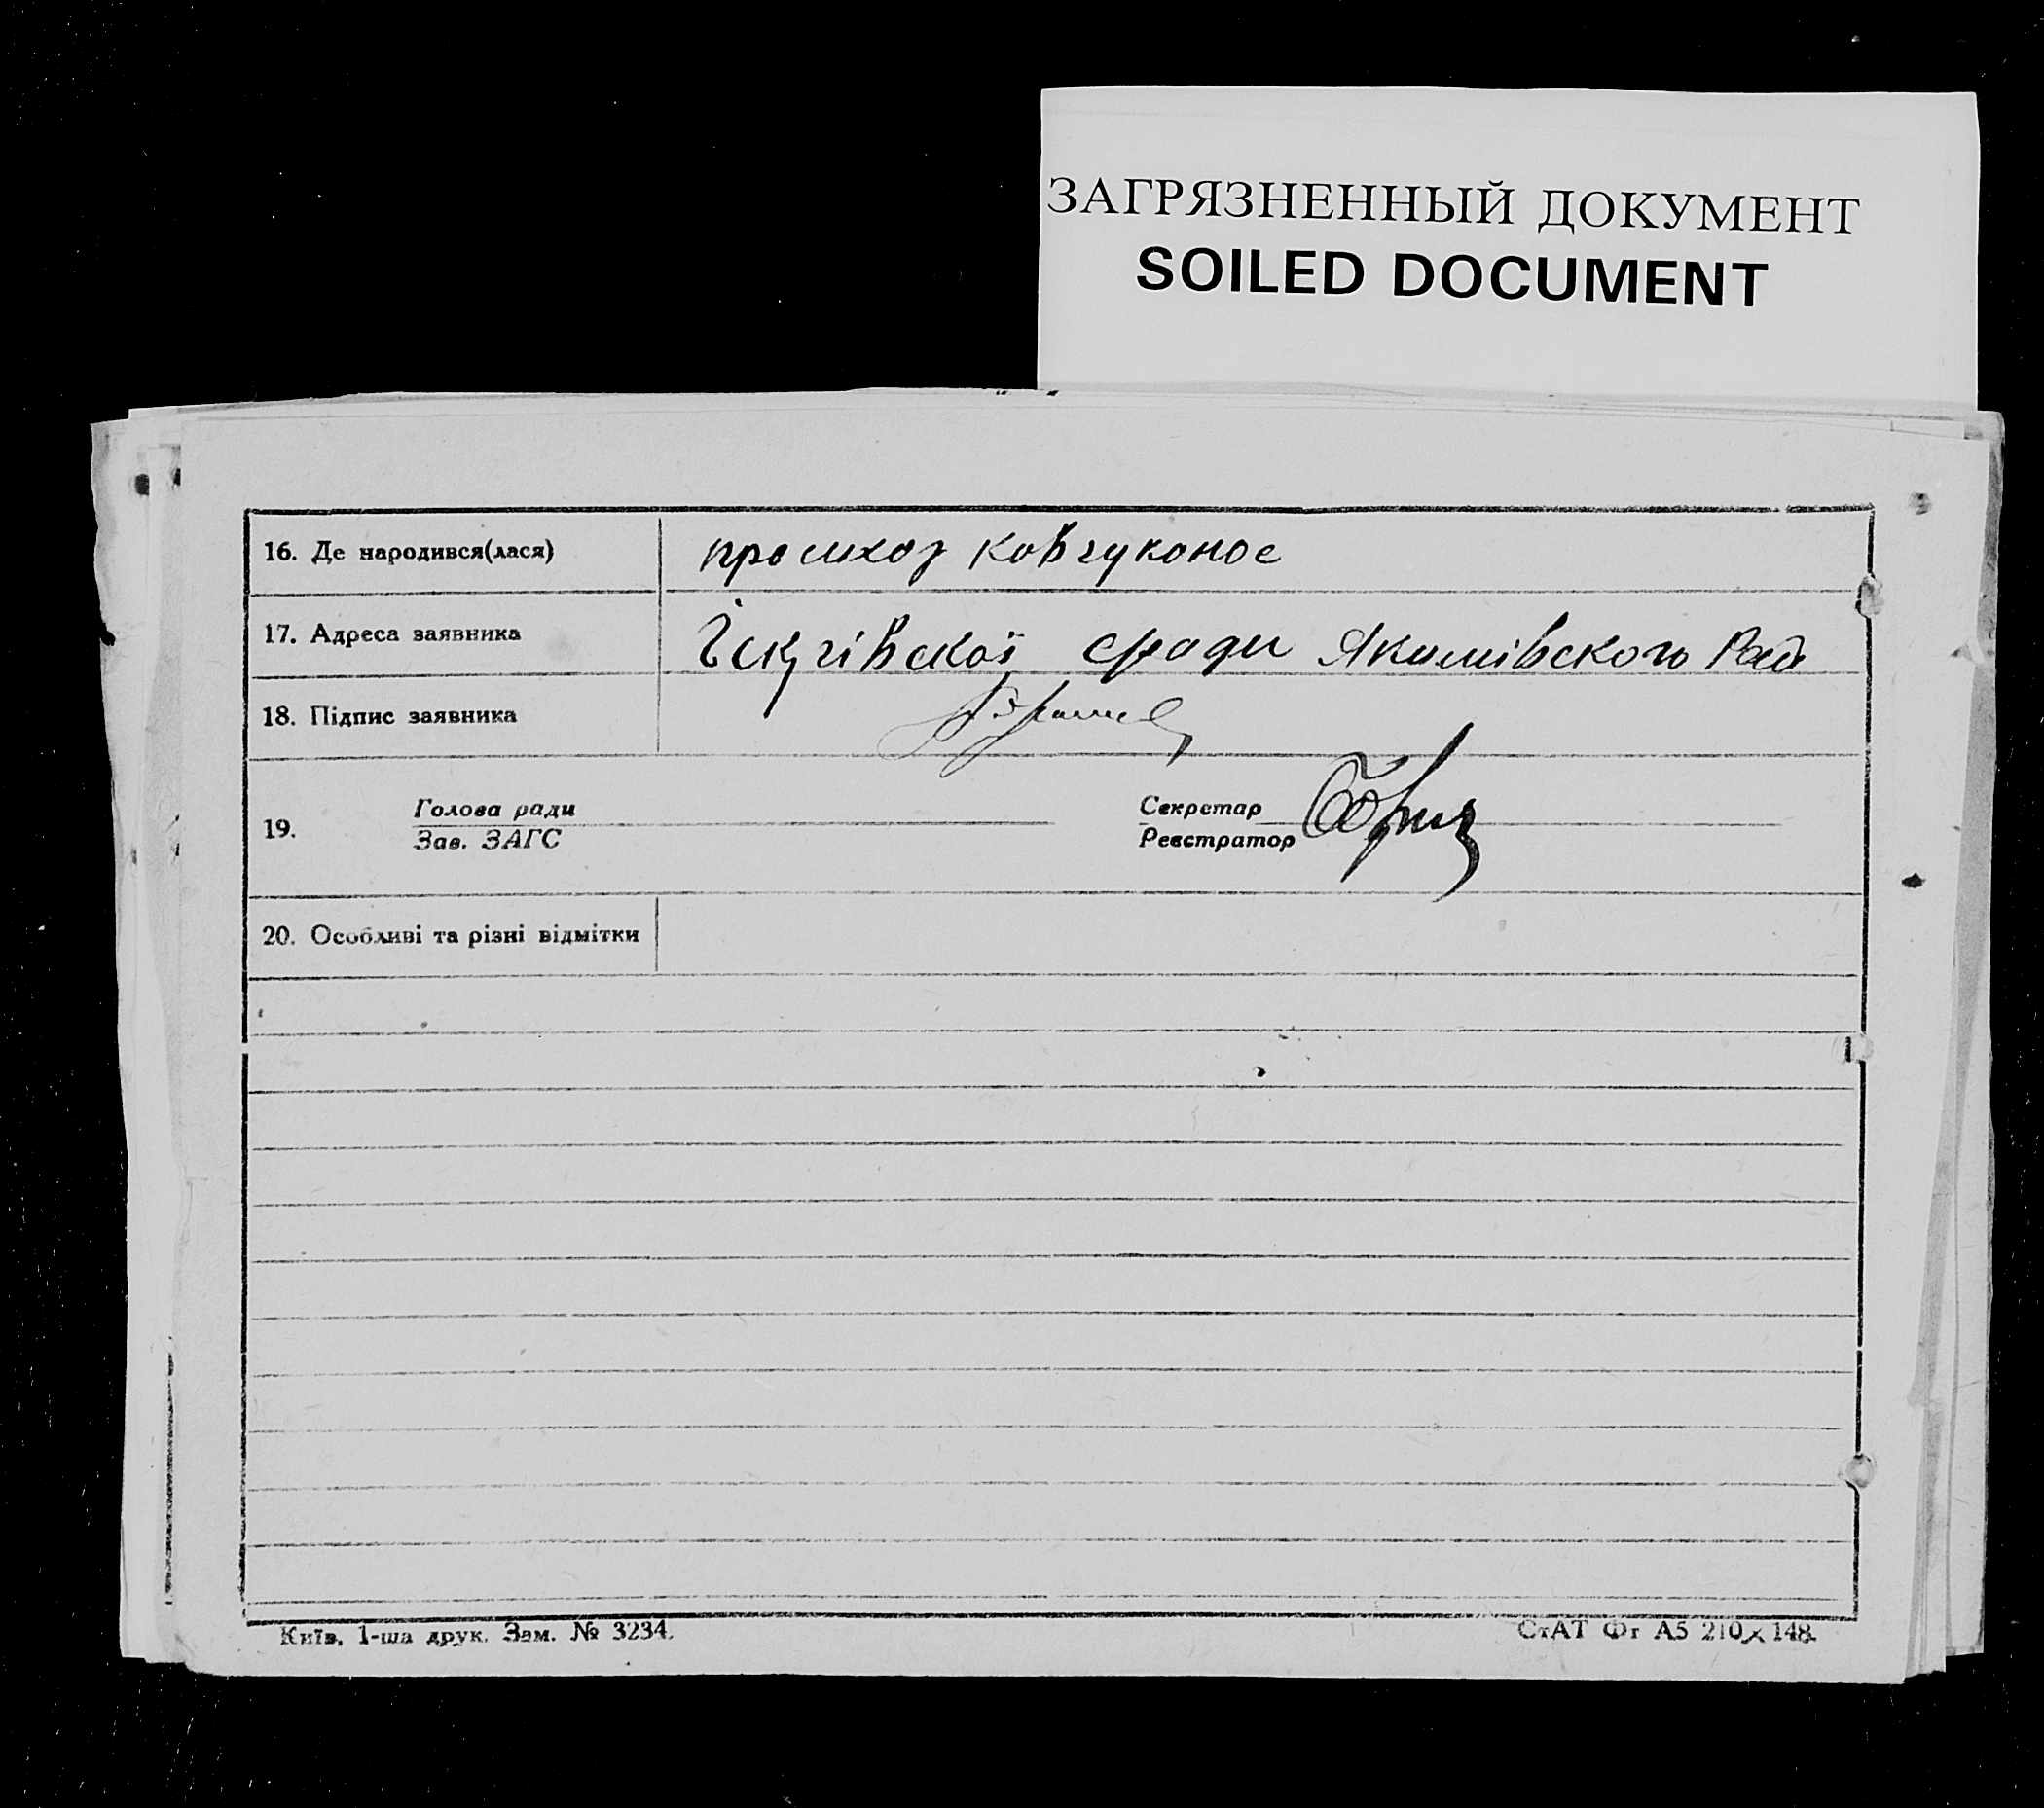 ЗАГРЯЗНЕННЫЙ ДОКУМЕНТ
SOILED DOCUMENT
16. Де народився(лася) промхоз Ковчуконос
17. Адреса заявника сради Якимівского Рай
18. Підпис заявника
19. Голова ради Секретар
Зав. ЗАГС Реєстратор
20. Особливі та різні відмітки
Київ, 1-ша друк. Зам. № 3234.
СтАТ Фт А5 210×148.